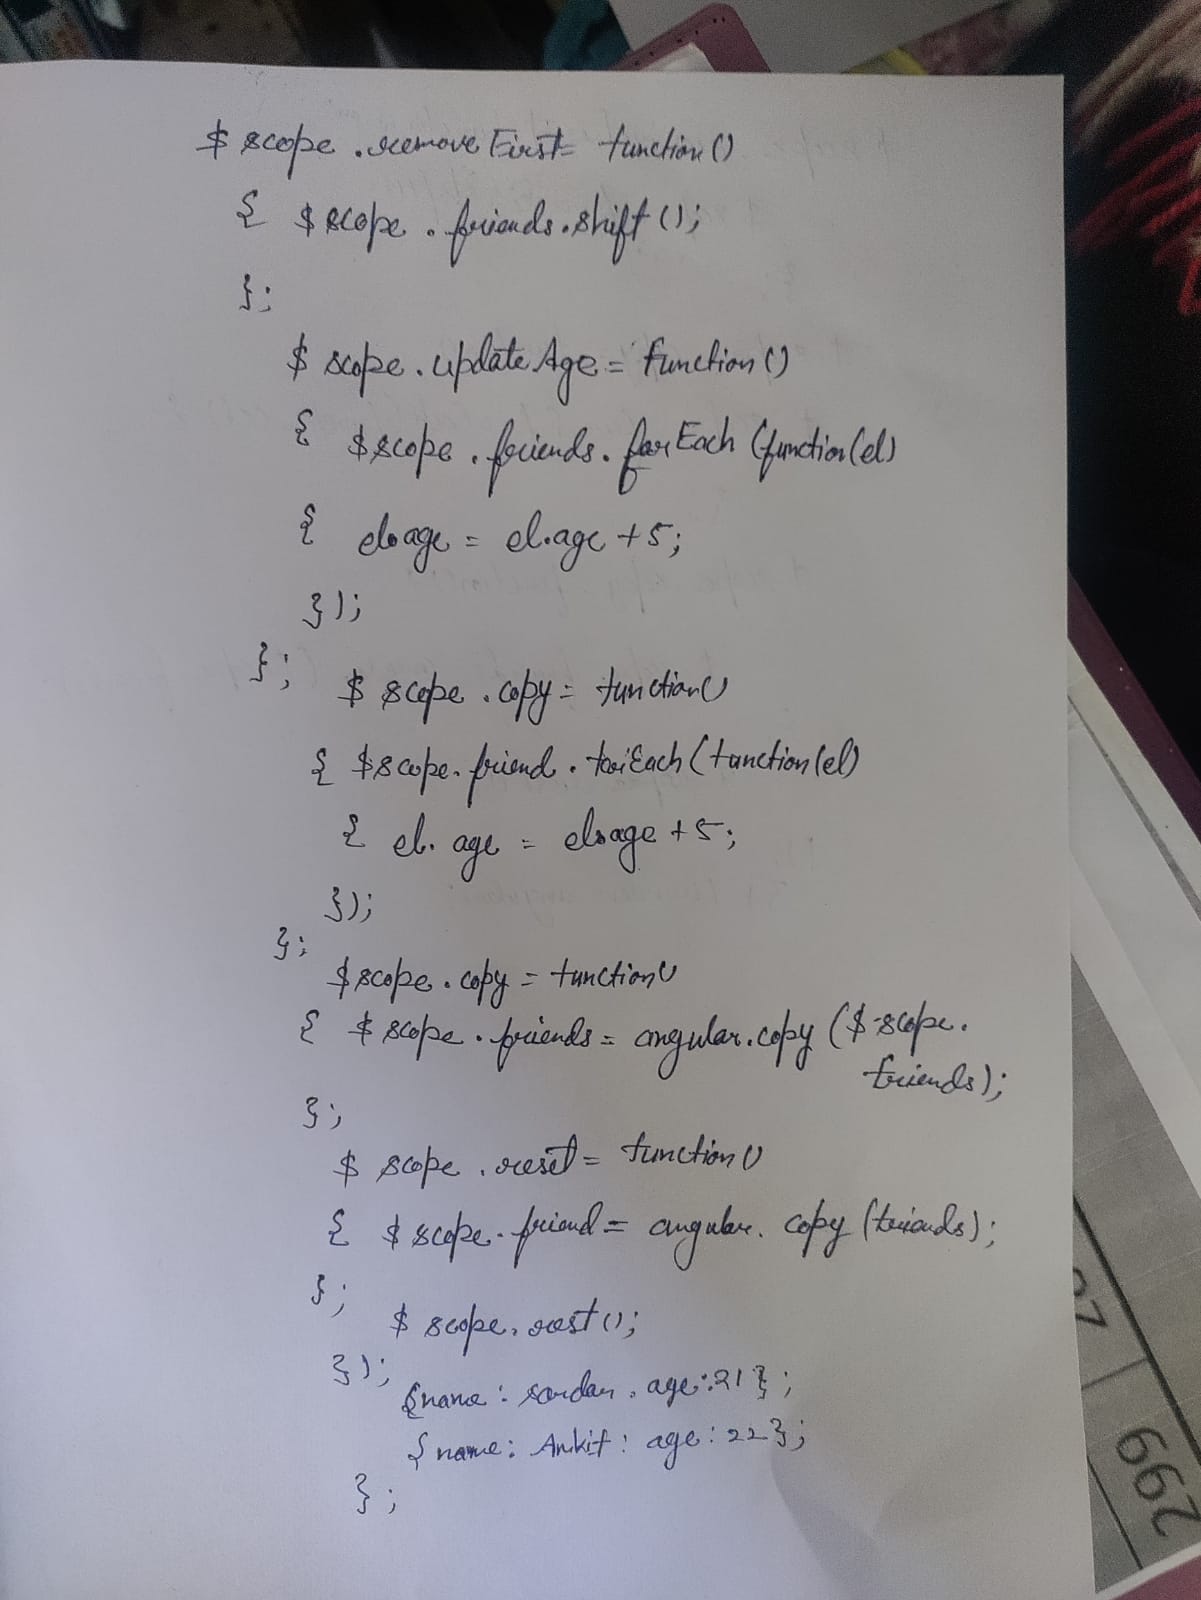 $scope.removeFirst = function()
{ $scope.friends.shift();
};
$scope.updateAge = function()
{ $scope.friends.forEach(function(el)
{ el.age = el.age +5;
});
};
$scope.copy = function()
{ $scope.friend.forEach(function(el)
{ el.age = el.age +5;
});
};
$scope.copy = function()
{ $scope.friends = angular.copy($scope.
friends);
};
$scope.reset = function()
{ $scope.friend = angular.copy(friends);
};
$scope.rest();
});
{name: sardar, age:21};
{name: Ankit: age:22};
};
297
299